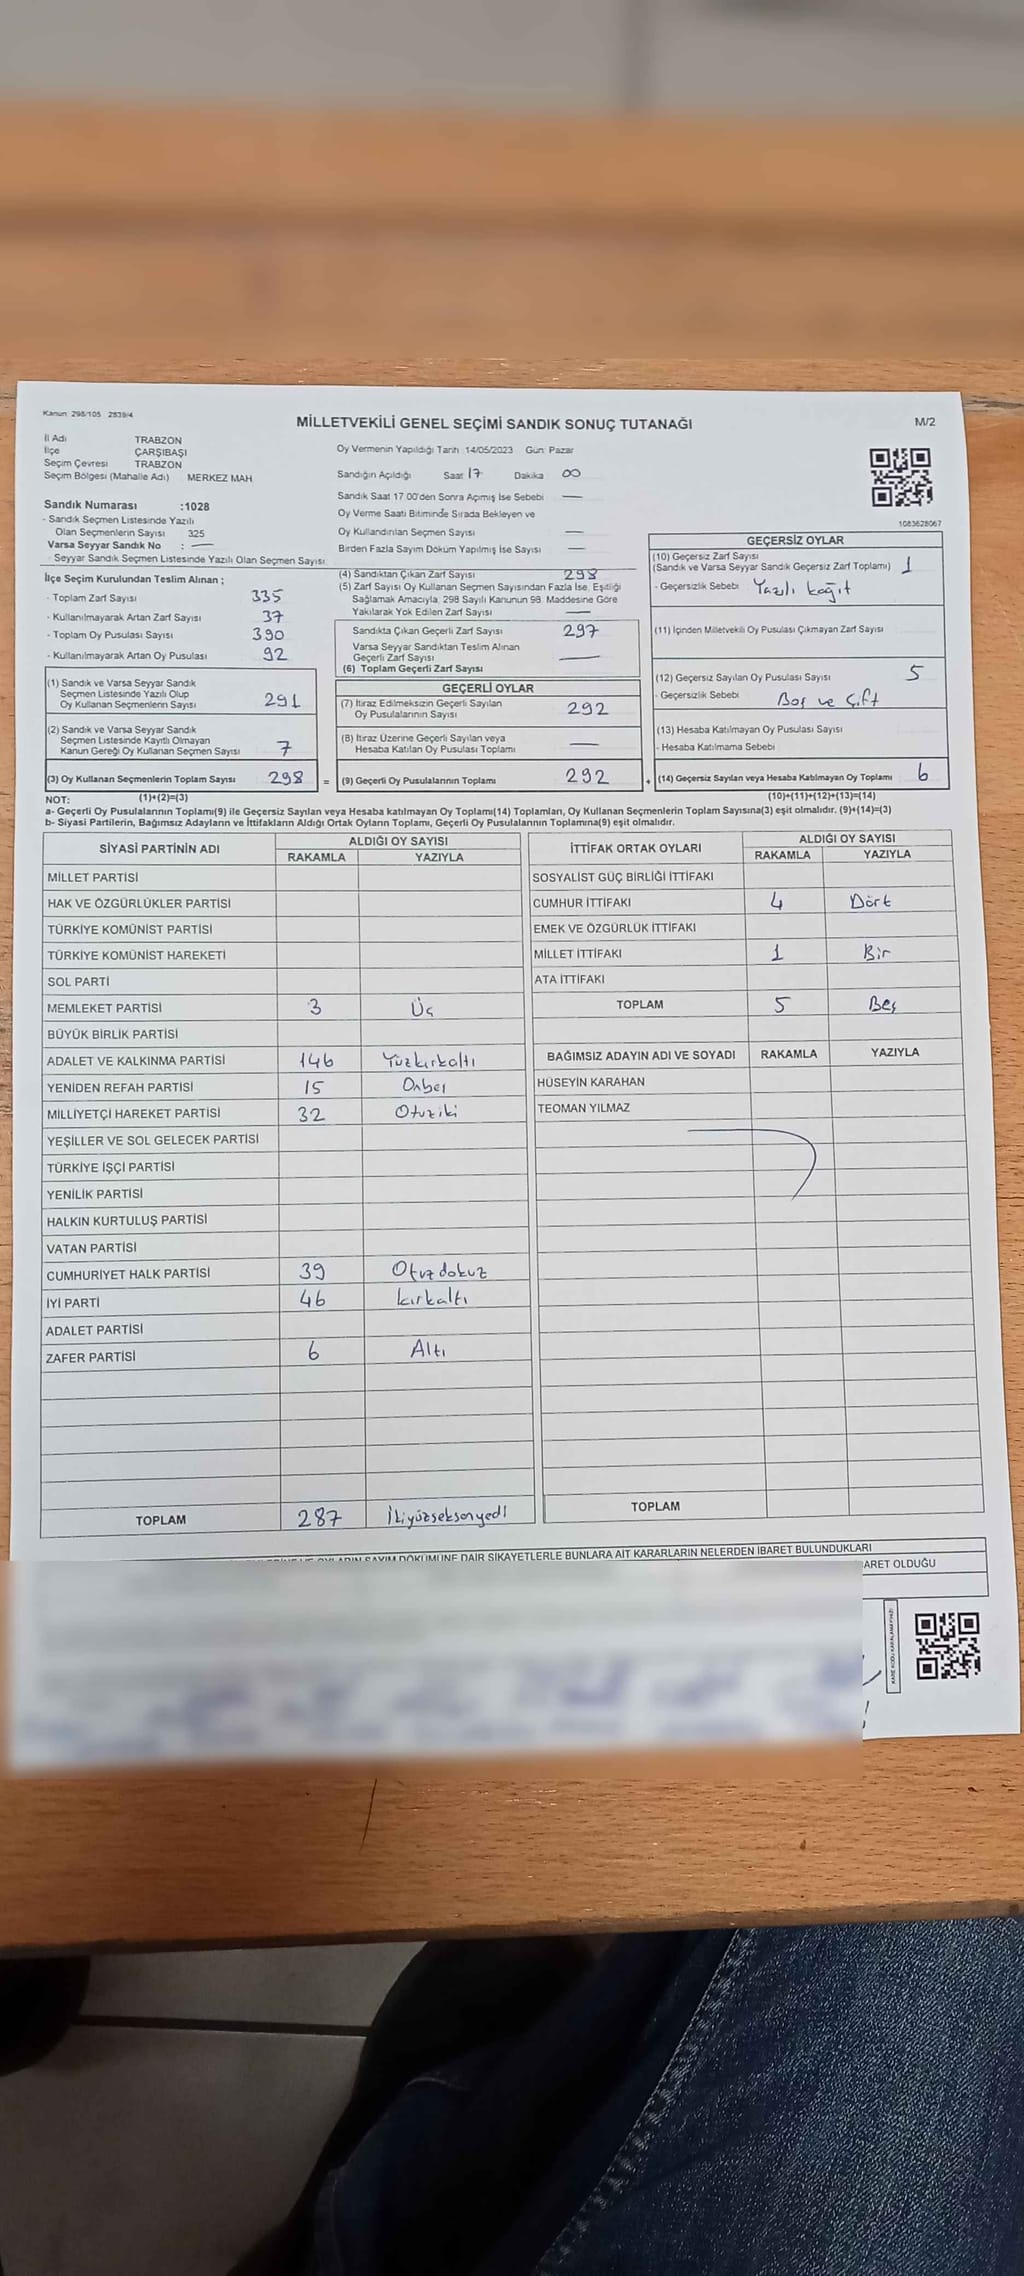 Kanun: 298/105 2839/4
MİLLETVEKİLİ GENEL SEÇİMİ SANDIK SONUÇ TUTANAĞI
M/2
İl Adı TRABZON
İlçe ÇARŞIBAŞI
Seçim Çevresi TRABZON
Seçim Bölgesi (Mahalle Adı) MERKEZ MAH
Sandık Numarası :1028
- Sandık Seçmen Listesinde Yazılı
Olan Seçmenlerin Sayısı 325
Varsa Seyyar Sandık No : —
Seyyar Sandık Seçmen Listesinde Yazılı Olan Seçmen Sayısı:
Oy Vermenin Yapıldığı Tarih 14/05/2023 Gün: Pazar
Sandığın Açıldığı Saat 17 Dakika 00
Sandık Saat 17 00'den Sonra Açımış İse Sebebi —
Oy Verme Saati Bitiminde Sırada Bekleyen ve
Oy Kullandırılan Seçmen Sayısı —
Birden Fazla Sayım Döküm Yapılmış İse Sayısı —
1083628067
İlçe Seçim Kurulundan Teslim Alınan ;
- Toplam Zarf Sayısı 335
- Kullanılmayarak Artan Zarf Sayısı 37
- Toplam Oy Pusulası Sayısı 390
- Kullanılmayarak Artan Oy Pusulası 92
(1) Sandık ve Varsa Seyyar Sandık
Seçmen Listesinde Yazılı Olup
Oy Kullanan Seçmenlerin Sayısı 291
(2) Sandık ve Varsa Seyyar Sandık
Seçmen Listesinde Kayıtlı Olmayan
Kanun Gereği Oy Kullanan Seçmen Sayısı 7
(3) Oy Kullanan Seçmenlerin Toplam Sayısı 298 =
(4) Sandıktan Çıkan Zarf Sayısı 298
(5) Zarf Sayısı Oy Kullanan Seçmen Sayısından Fazla İse, Eşitliği
Sağlamak Amacıyla, 298 Sayılı Kanunun 98. Maddesine Göre
Yakılarak Yok Edilen Zarf Sayısı —
Sandıkta Çıkan Geçerli Zarf Sayısı 297
Varsa Seyyar Sandıktan Teslim Alınan
Geçerli Zarf Sayısı —
(6) Toplam Geçerli Zarf Sayısı
GEÇERLİ OYLAR
(7) İtiraz Edilmeksizin Geçerli Sayılan
Oy Pusulalarının Sayısı 292
(8) İtiraz Üzerine Geçerli Sayılan veya
Hesaba Katılan Oy Pusulası Toplamı —
(9) Geçerli Oy Pusulalarının Toplamı 292 +
GEÇERSİZ OYLAR
(10) Geçersiz Zarf Sayısı
(Sandık ve Varsa Seyyar Sandık Geçersiz Zarf Toplamı) 1
- Geçersizlik Sebebi Yazılı kağıt
(11) İçinden Milletvekili Oy Pusulası Çıkmayan Zarf Sayısı
(12) Geçersiz Sayılan Oy Pusulası Sayısı 5
- Geçersizlik Sebebi Boş ve Çift
(13) Hesaba Katılmayan Oy Pusulası Sayısı
- Hesaba Katılmama Sebebi
(14) Geçersiz Sayılan veya Hesaba Katılmayan Oy Toplamı 6
NOT: (1)+(2)=(3) (10)+(11)+(12)+(13)=(14)
a- Geçerli Oy Pusulalarının Toplamı(9) ile Geçersiz Sayılan veya Hesaba katılmayan Oy Toplamı(14) Toplamları, Oy Kullanan Seçmenlerin Toplam Sayısına(3) eşit olmalıdır. (9)+(14)=(3)
b- Siyasi Partilerin, Bağımsız Adayların ve İttifakların Aldığı Ortak Oyların Toplamı, Geçerli Oy Pusulalarının Toplamına(9) eşit olmalıdır.
SİYASİ PARTİNİN ADI ALDIĞI OY SAYISI
RAKAMLA YAZIYLA
MİLLET PARTİSİ
HAK VE ÖZGÜRLÜKLER PARTİSİ
TÜRKİYE KOMÜNİST PARTİSİ
TÜRKİYE KOMÜNİST HAREKETİ
SOL PARTİ
MEMLEKET PARTİSİ 3 Üç
BÜYÜK BİRLİK PARTİSİ
ADALET VE KALKINMA PARTİSİ 146 Yüzkırkaltı
YENİDEN REFAH PARTİSİ 15 Onbeş
MİLLİYETÇİ HAREKET PARTİSİ 32 Otuziki
YEŞİLLER VE SOL GELECEK PARTİSİ
TÜRKİYE İŞÇİ PARTİSİ
YENİLİK PARTİSİ
HALKIN KURTULUŞ PARTİSİ
VATAN PARTİSİ
CUMHURİYET HALK PARTİSİ 39 Otuzdokuz
İYİ PARTİ 46 kırkaltı
ADALET PARTİSİ
ZAFER PARTİSİ 6 Altı
TOPLAM 287 İkiyüzseksenyedi
İTTİFAK ORTAK OYLARI ALDIĞI OY SAYISI
RAKAMLA YAZIYLA
SOSYALİST GÜÇ BİRLİĞİ İTTİFAKI
CUMHUR İTTİFAKI 4 Dört
EMEK VE ÖZGÜRLÜK İTTİFAKI
MİLLET İTTİFAKI 1 Bir
ATA İTTİFAKI
TOPLAM 5 Beş
BAĞIMSIZ ADAYIN ADI VE SOYADI RAKAMLA YAZIYLA
HÜSEYİN KARAHAN
TEOMAN YILMAZ
TOPLAM
OYLARIN SAYIM DÖKÜMÜNE DAİR ŞİKAYETLERLE BUNLARA AİT KARARLARIN NELERDEN İBARET BULUNDUKLARI
ARET OLDUĞU